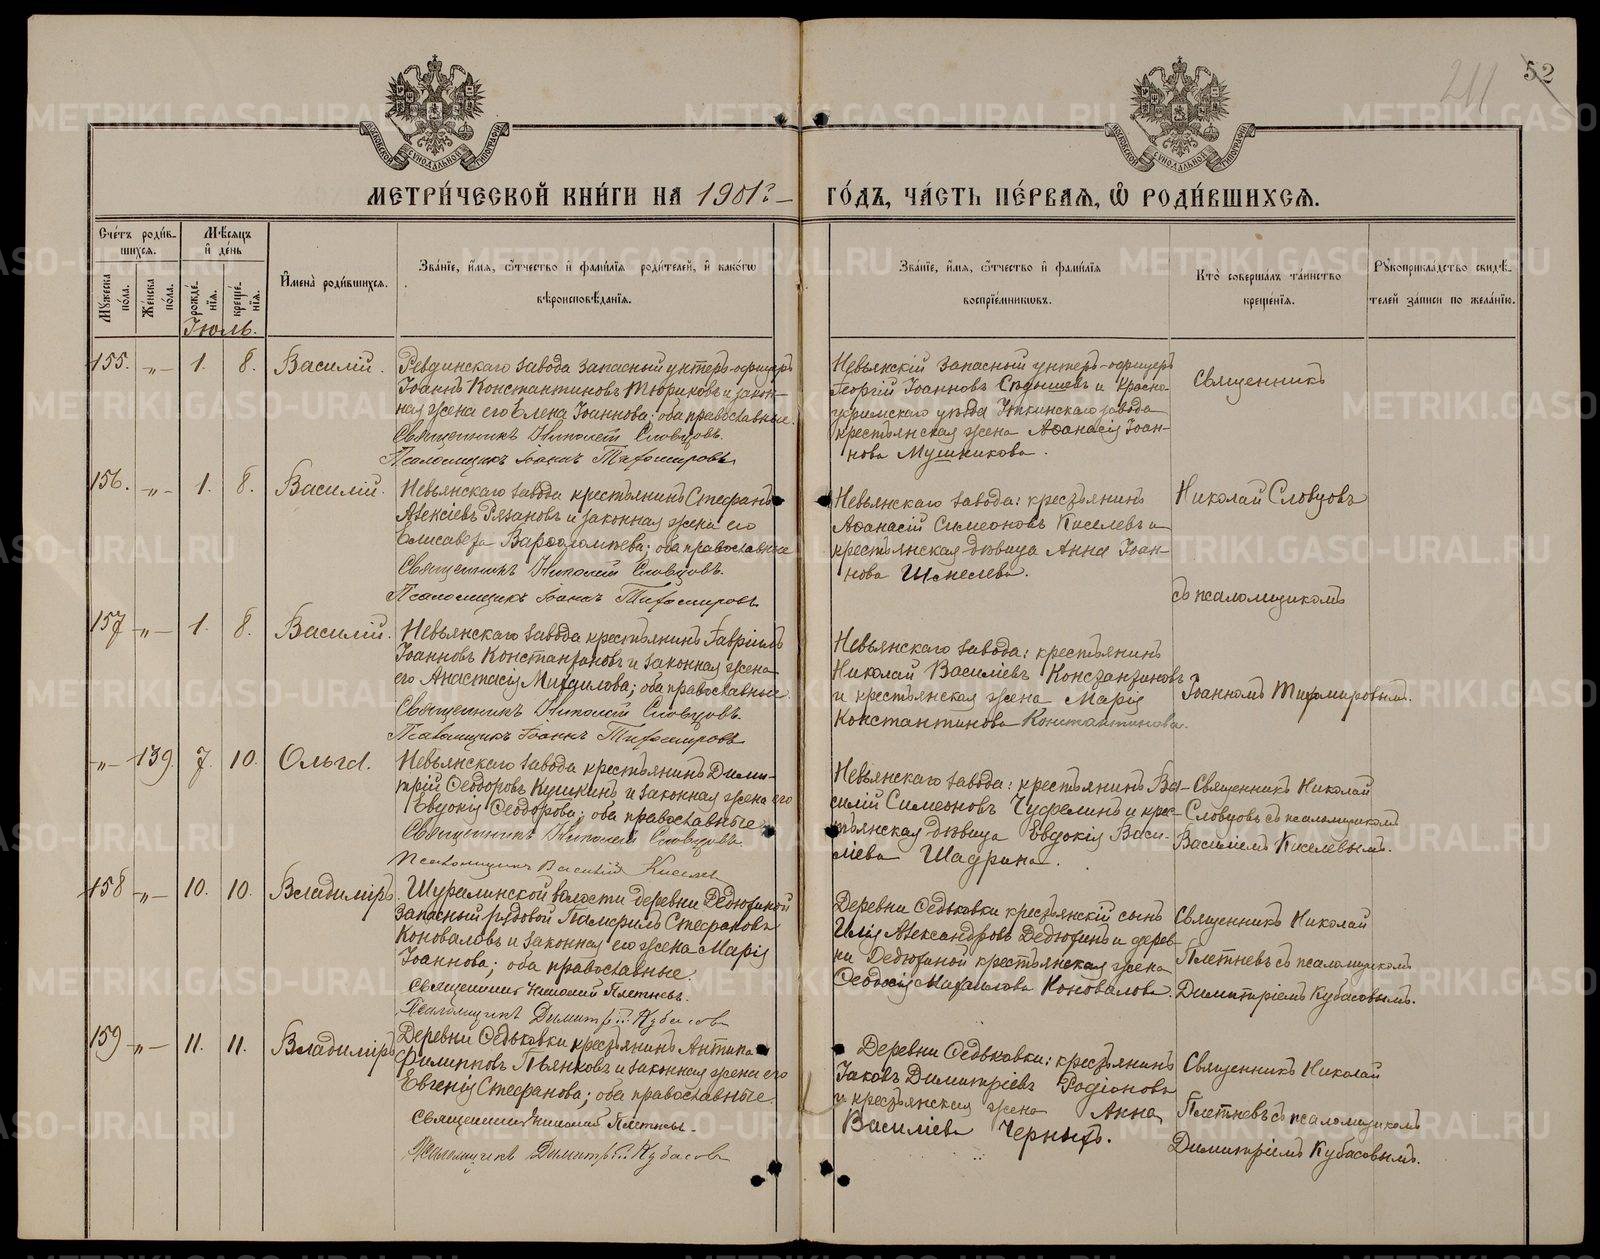 211
52
МЕТРИ́ЧЕСКОЙ КНИ́ГИ НА 1901 г.
ГО́ДЪ, ЧА́СТЬ ПЕ́РВАѦ, Ѽ РОДИ́ВШИХСѦ.
Сче́тъ роди́в-
шихсѧ.
Мѣ́сѧцъ
и҆ де́нь
Мꙋ́жеска
по́ла.
Же́нска
по́ла.
рожде́-
нїѧ.
креще́-
нїѧ.
И҆мена̀ роди́вшихсѧ.
Зва́нїе, и҆́мѧ, ѻ҆́тчество и҆ фами́лїѧ роди́телей, и҆ како́гѡ
вѣроисповѣ́данїѧ.
Зва́нїе, и҆́мѧ, ѻ҆́тчество и҆ фами́лїѧ
воспрїе́мникѡвъ.
Кто̀ соверша́лъ та́инство
креще́нїѧ.
Рꙋкоприкла́дство свидѣ́-
телей за́писи по жела́нїю.
Іюль.
155. -„- 1. 8. Василій.
Ревдинскаго завода запасный унтеръ-офицеръ
Іоаннъ Константиновъ Тюриковъ и закон-
ная жена его Елена Іоаннова; оба православные.
Священникъ Николай Словцовъ.
Псаломщикъ Іоаннъ Тихомировъ
Невьянскій запасный унтеръ-офицеръ
Георгій Іоанновъ и Красно-
уфимскаго уѣзда Уткинскаго завода
крестьянская жена Аѳанасія Іоан-
нова Мушникова.
Священникъ
156. -„- 1. 8. Василій.
Невьянскаго завода крестьянинъ Стефанъ
Алексіевъ Рязановъ и законная жена его
Елисавета Варѳоломѣева; оба православные
Священникъ Николай Словцовъ.
Псаломщикъ Іоаннъ Тихомировъ
Невьянскаго завода: крестьянинъ
Аѳанасій Симеоновъ Киселевъ и
крестьянская дѣвица Анна Іоан-
нова
Николай Словцовъ
съ псаломщикомъ
157 -„- 1. 8. Василій.
Невьянскаго завода крестьянинъ Гавріилъ
Іоанновъ Константиновъ и законная жена
его Анастасія Михаилова; оба православные.
Священникъ Николай Словцовъ.
Псаломщикъ Іоаннъ Тихомировъ
Невьянскаго завода: крестьянинъ
Николай Василіевъ Константиновъ
и крестьянская жена Марія
Константинова Константинова.
Іоанномъ Тихомировымъ.
-„- 139. 7. 10. Ольга.
Невьянскаго завода крестьянинъ Дими-
трій Ѳеодоровъ Кушкинъ и законная жена его
Евдокія Ѳеодорова; оба православные
Священникъ Николай Словцовъ.
Псаломщикъ Василій Киселевъ
Невьянскаго завода: крестьянинъ Ва-
силій Симеоновъ и крес-
тьянская дѣвица Евдокія Васи-
ліева Шадрина.
Священникъ Николай
Словцовъ съ псаломщикомъ
Василіемъ Киселевымъ.
158 -„- 10. 10. Владиміръ
Шуралинской волости деревни Дедюхиной
запасный рядовой Памфилъ Стефановъ
Коноваловъ и законная его жена Марія
Іоаннова; оба православные.
Священникъ Николай Плетневъ.
Псаломщикъ Димитрій Кубасовъ
Деревни Ѳедьковки крестьянскій сынъ
Илія Александровъ Дедюхинъ и дерев-
ни Дедюхиной крестьянская жена
Ѳеодосія Михаилова Коновалова.
Священникъ Николай
Плетневъ съ псаломщикомъ
Димитріемъ Кубасовымъ.
159 -„- 11. 11. Владиміръ
Деревни Ѳедьковки крестьянинъ Антипа
Филипповъ Пьянковъ и законная жена его
Евгенія Стефанова; оба православные.
Священникъ Николай Плетневъ.
Псаломщикъ Димитрій Кубасовъ
Деревни Ѳедьковки: крестьянинъ
Іаковъ Димитріевъ Родіоновъ
и крестьянская жена Анна
Василіева Черныхъ.
Священникъ Николай
Плетневъ съ псаломщикомъ
Димитріемъ Кубасовымъ.
METRIKI.GASO-URAL.RU